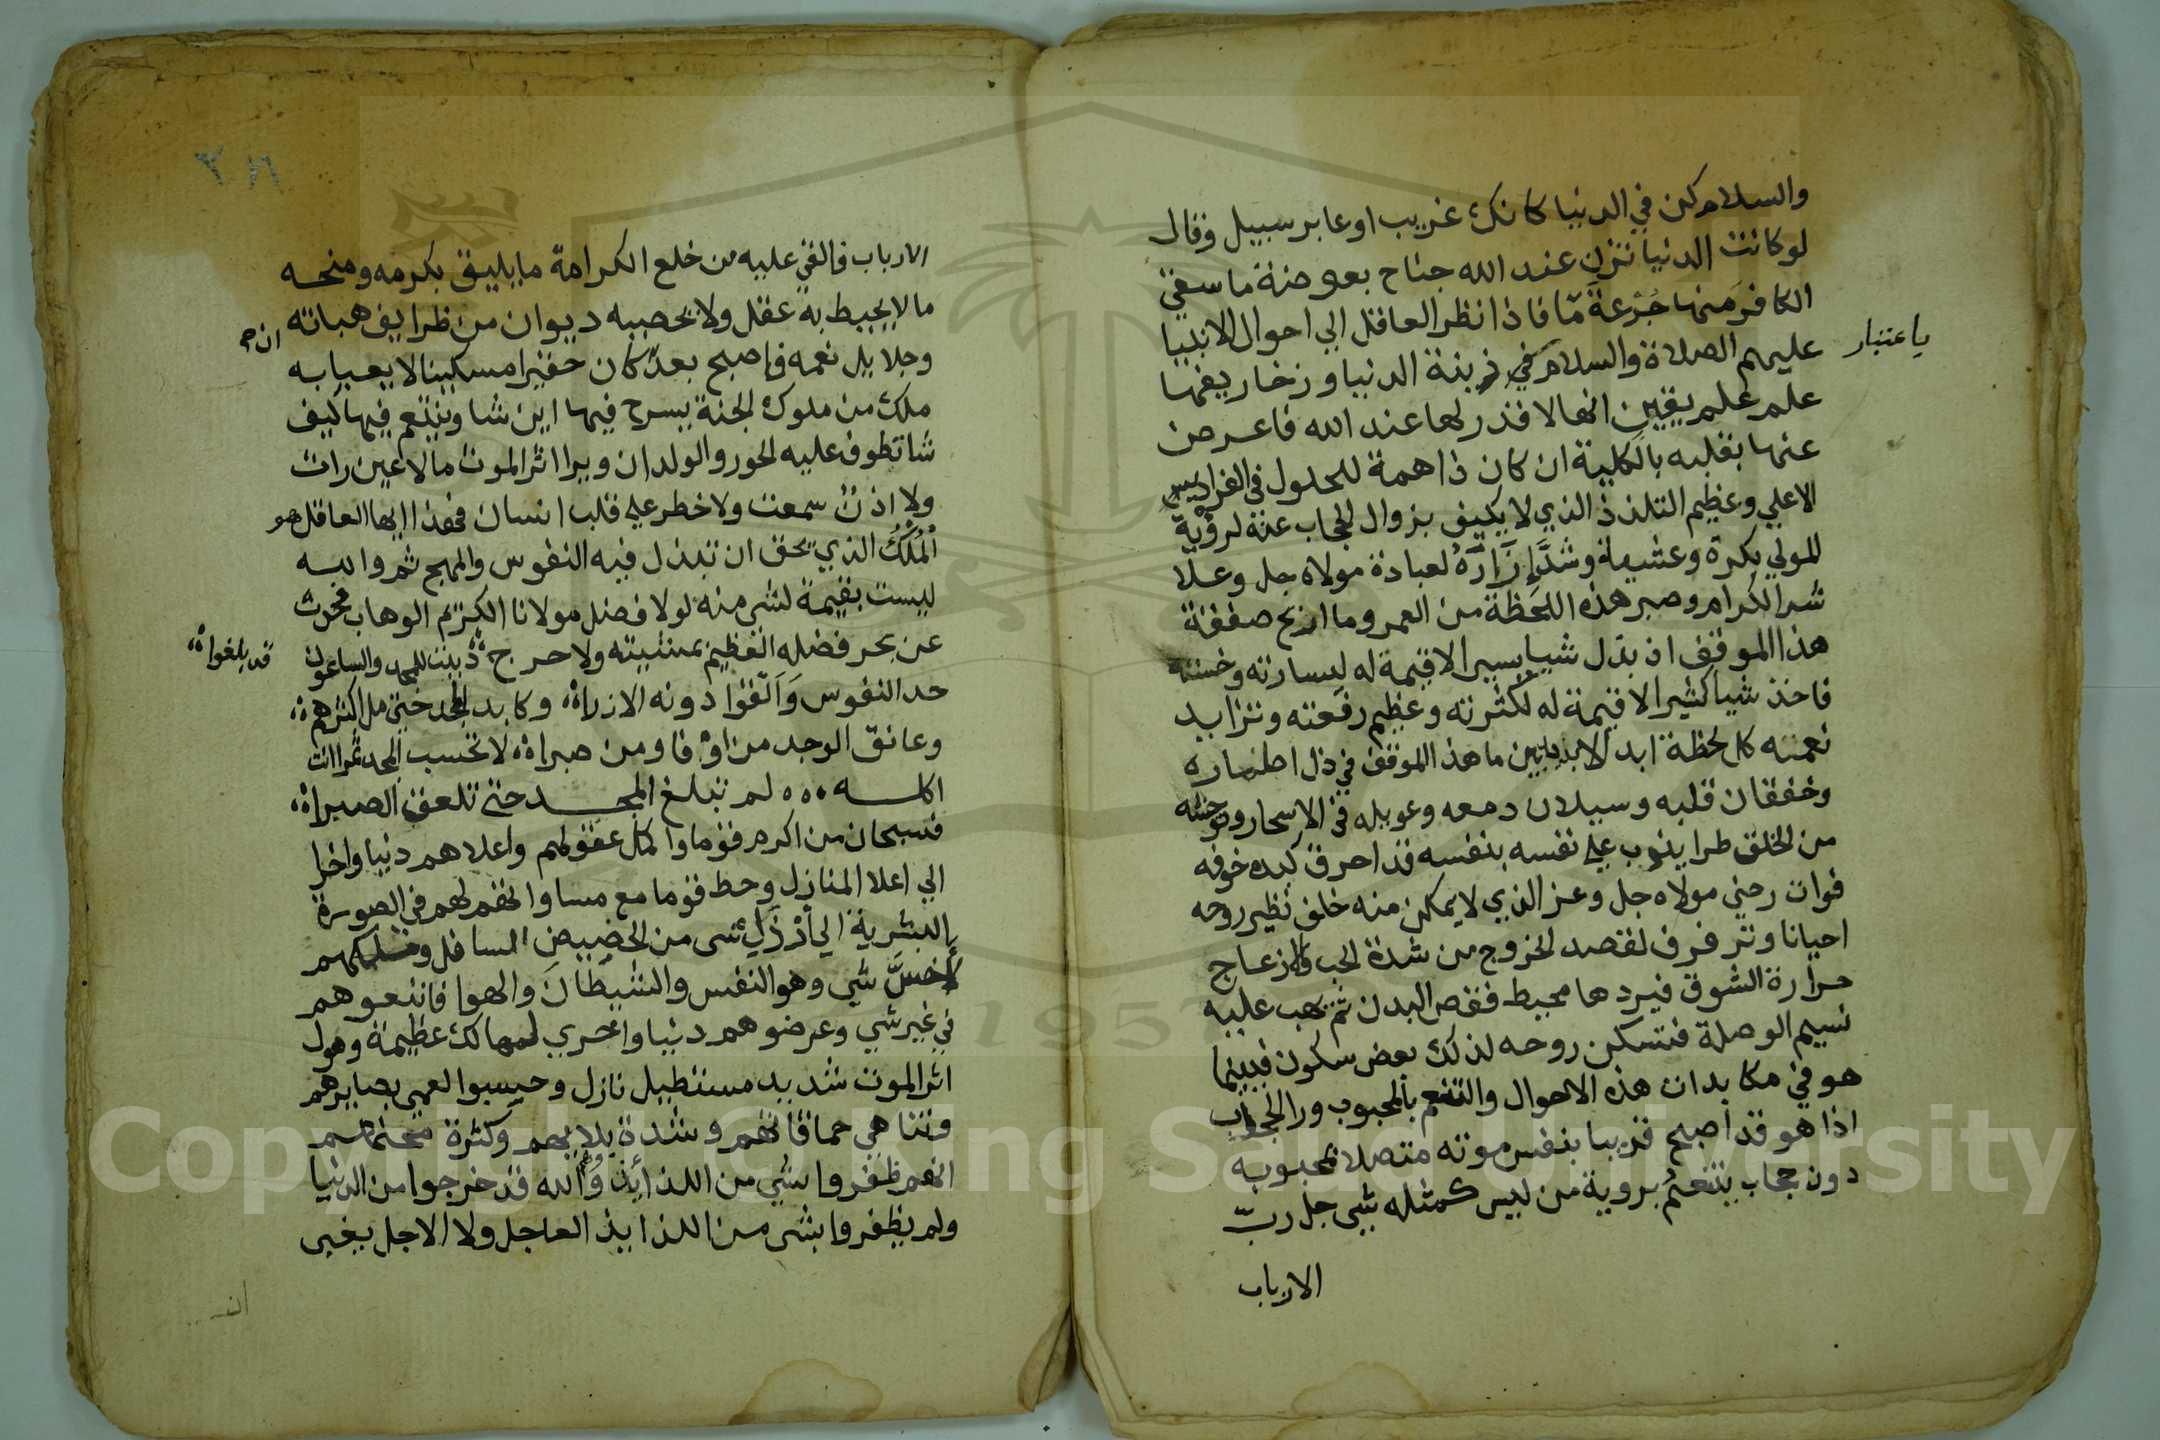 والسلام كن في الدنيا كانك غريب او عابر سبيل وقال
لو كانت الدنيا تزن عند الله جناح بعوضة ما سقي
الكافر منها جُرْعةَ مّا فاذا نظر العاقل الي احوال الانبيا
عليهم الصلاة والسلام في زينة الدنيا وزخاريفها
باعتبار
علم علم يقين انها لا قدر لها عند الله فاعرض
عنها بقلبه بالكلية ان كان ذا همة للحلول في الفراديس
الاعلي وعظيم التلذذ الذي لا يكيف بزوال الحجاب عنه لرؤية
المولي بكرة وعشية وشدَّ إزَارَهُ لعبادة مولاه جل وعلا
شد الكرام وصبر هذه اللحظة من العمر وما اربح صفقة
هذا الموفق اذ بذل شيا يسيرا لا قيمة له ليسارته وخسته
فاخذ شيا كثيرا لا قيمة له لكثرته وعظيم رفعته وتزايد
نعمته كل لحظة ابد الابدين بين ما هذا الموفق في ذل اطماره
وخفقان قلبه وسيلان دمعه وعويله في الاسحار وتوحشه
من الخلق طرا ينوب علي نفسه بنفسه قد احرق كبده خوفه
فوات رضي مولاه جل وعز الذي لا يمكن منه خلف تظير روحه
احيانا وترفرف لقصد الخروج من شدة الحب والازعاج
حرارة الشوق فيردها محيط قفص البدن ثم تهب عليه
نسيم الوصلة فتسكن روحه لذلك بعض سكون فبينما
هو في مكابدات هذه الاحوال والتنعم بالمحبوب ورا الحجاب
اذا هو قد اصبح قريبا بنفس موته متصلا بمحبوبه
دون حجاب يتنعمُ بروية من ليس كمثله شي جل ربّ
الارباب
الارباب فالقي عليه من خلع الكرامة ما يليق بكرمه ومنحه
ما لا يحيط به عقل ولا يحصيه ديوان من ظرايف هباته
وجلايل نعمه فاصبح بعد كان حقيرا مسكينا لا يعبا به
ان
ملك من ملوك الجنة يسرح فيها اين شا ويتنعم فيها كيف
شا تطوف عليه الحور والولدان ويرا اثر الموت ما لا عين رات
ولا اذن سمعت ولا خطر علي قلب انسان فهذا ايها العاقل هو
المُلْكُ الذي يحق ان تبذل فيه النفوس والمهج ثم والله
ليست بقيمة لشي منه لولا فضل مولانا الكريم الوهاب فحدث
عن بحر فضله العظيم بمشيته ولا حرج دببت للمجد والساعون
قد بلغوا
حد النفوس وَاَلقَوا دونه الازرا وكابد المجد حتي مل اكثرهم
وعانق الوجد من اوفا ومن صبرا لا تحسب المجد تمرا انت
اكله لم تبلغ المجد حتي تلعق الصبرا
فسبحان من اكرم قوما واكمل عقولهم واعلاهم دنيا واخرا
الي اعلا المنازل وحط قوما مع مساواتهم لهم في الصورة
البشرية الي أرْذَلِ شي من الحضيض السافل وملكهم
لأخسَّ شي وهو النفس والشيطان والهوا فاتبعوهم
في غير شي وعرضوهم دنيا واخري لمهالك عظيمة وهول
اثر الموت شديد مستطيل نازل وحسبوا لعمي بصايرهم
وتناهي حماقاتهم وشدة بلايهم وكثرة محنهم
انهم ظفروا بشي من اللذايذ والله قد خرجوا من الدنيا
ولم يظفروا بشي من اللذايذ العاجل ولا الاجل بغير